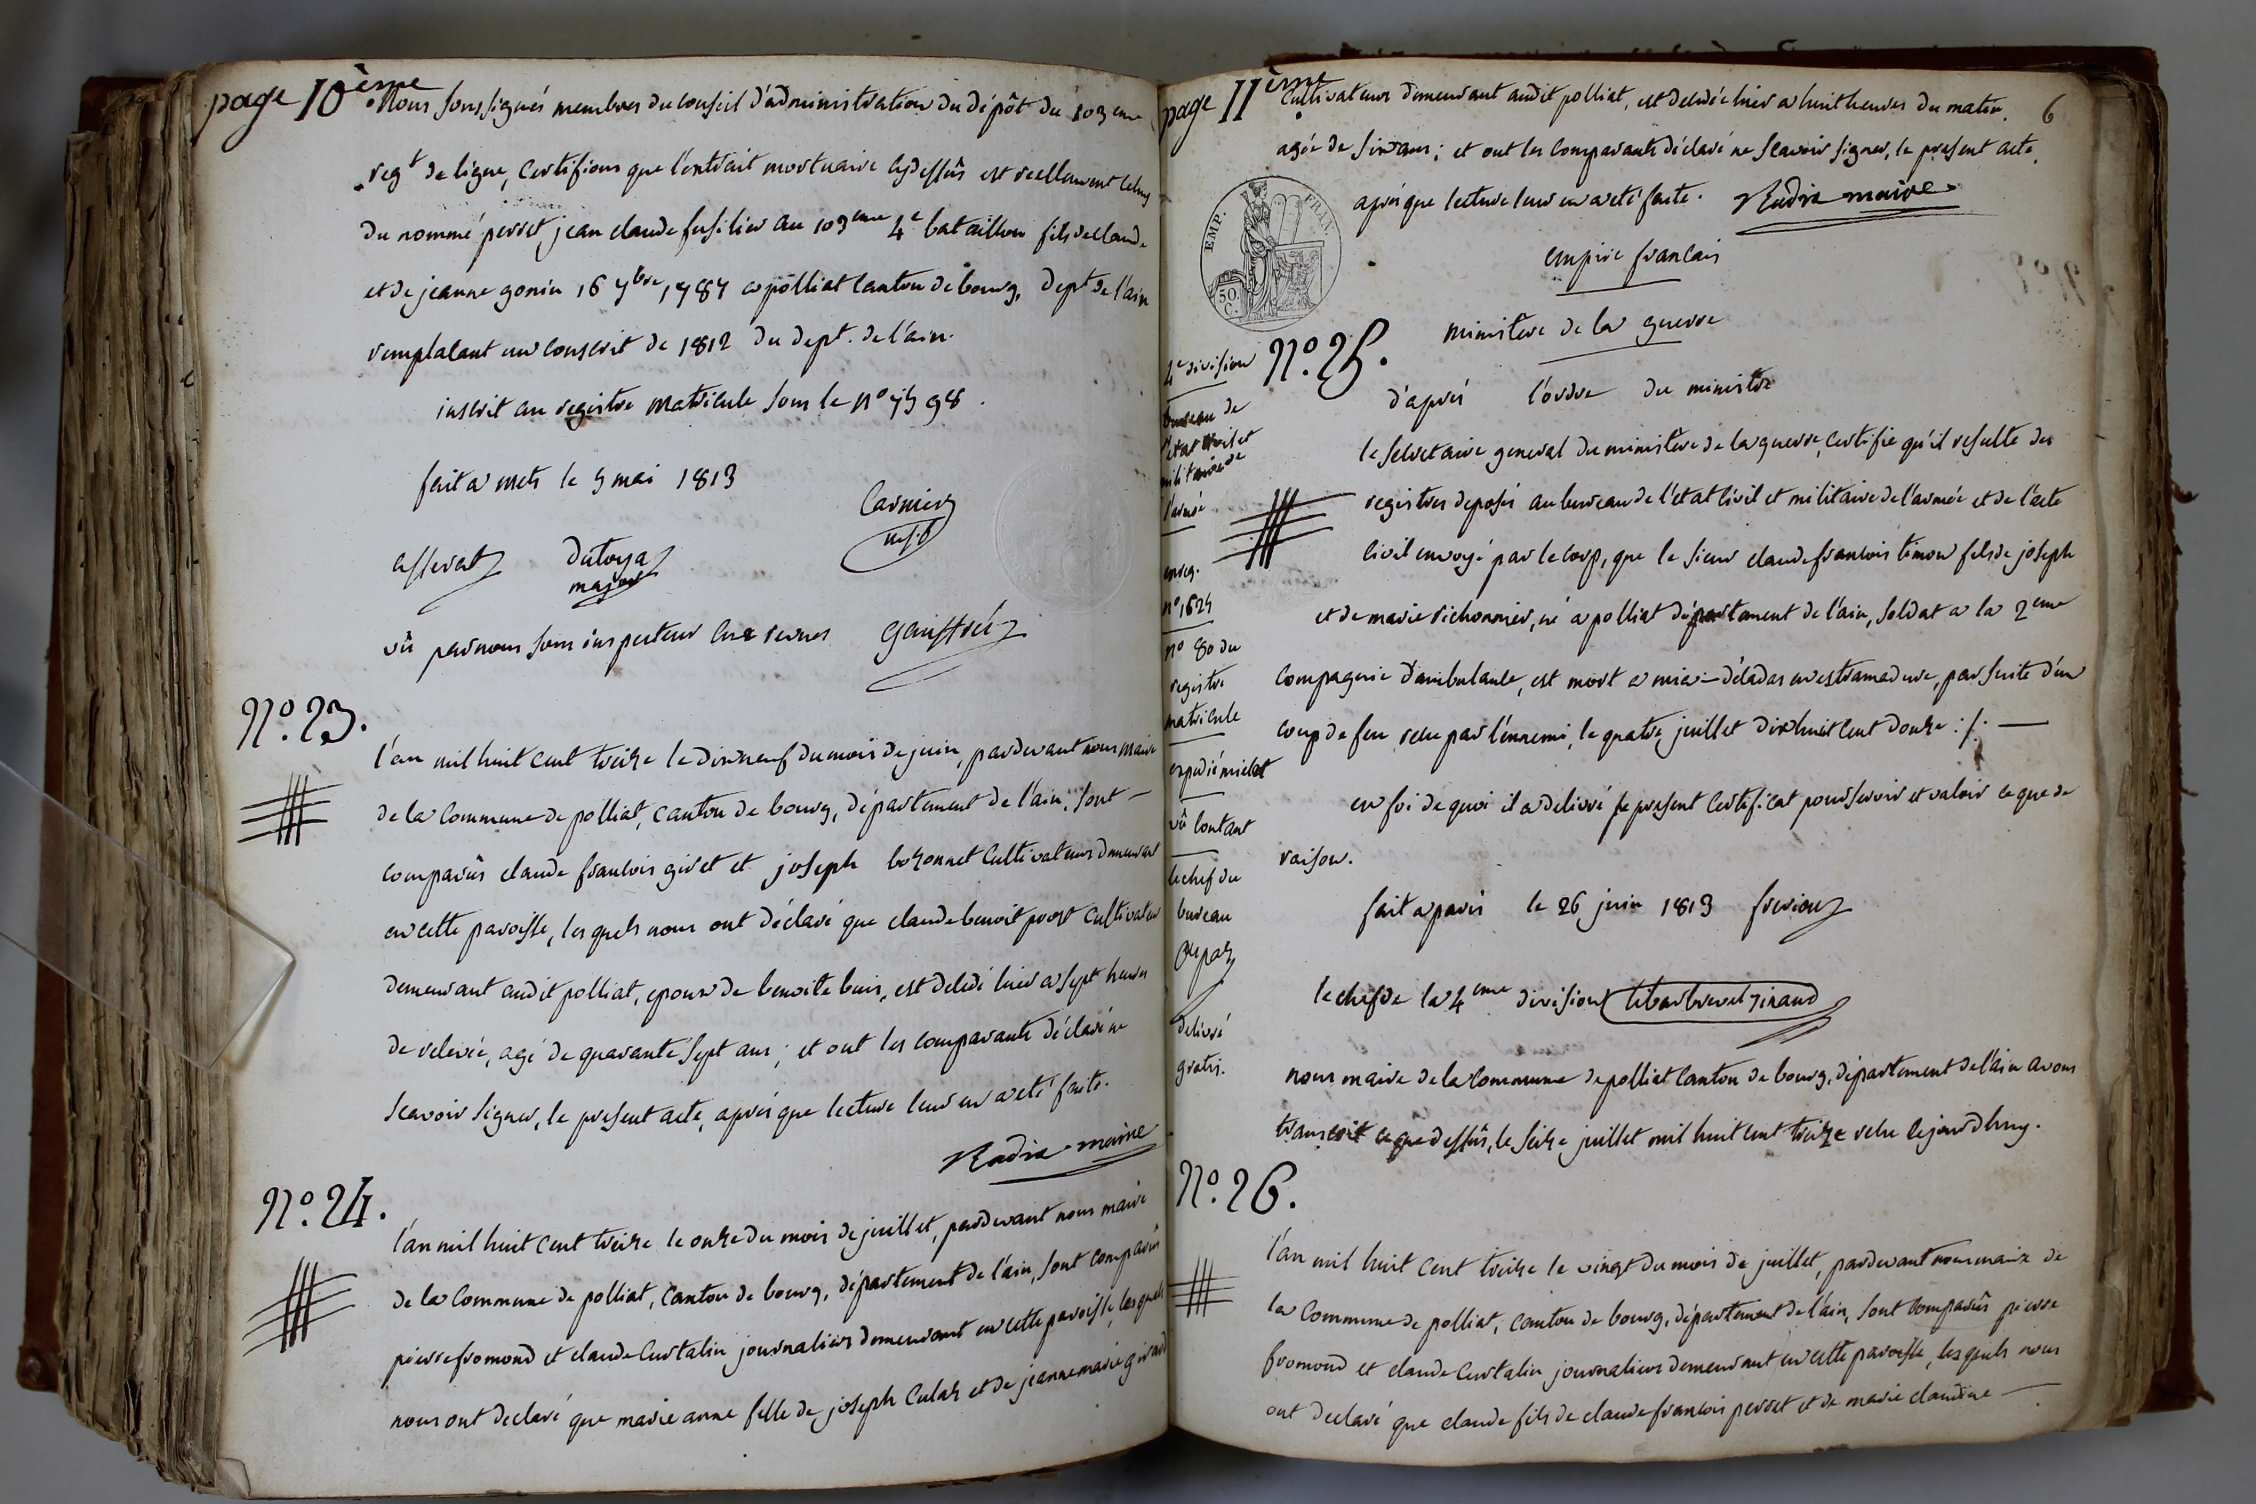 page 10ème
Nous soussignés membres du conseil d'administration du dépôt du 103eme
regt de ligne, certifions que l'extrait mortuaire cydessûs est reellement celuy
du nommé perret jean claude fusilier au 103eme 4e bataillon fils de claude
et de jeanne gonin 16 7bre 1787 a polliat canton de bourg, dept de l'ain
remplacant un conscrit de 1812 du dept. de l'ain.
inscrit au registre matricule sous le no 7598.
fait a mets le 5 mai 1813
Carnier
asserat Dutoya
major
vû par nous sous inspecteur aux revues gauffrés
No. 23.
l'an mil huit cent treize le dix neuf du mois de juin, pardevant nous maire
de la commune de polliat, canton de bourg, département de l'ain, sont
comparûs claude francois giret et joseph bozonnet cultivateurs demeurant
en cette paroisse, lesquels nous ont déclaré que claude benoit prost cultivateur
demeurant audit polliat, epoux de benoite buis, est decedé hier a sept heures
de relevée, agé de quarante sept ans; et ont les comparants déclaré ne
scavoir signer, le present acte, aprés que lecture leur en a eté faite.
Rudix maire
No. 24.
l'an mil huit cent treize le onze du mois de juillet, pardevant nous maire
de la commune de polliat, canton de bourg, département de l'ain, sont comparûs
pierre fromond et claude curtalin journaliers demeurant en cette paroisse, lesquels
nous ont declaré que marie anne fille de joseph culas et de jeanne marie girard
page 11ème
6
cultivateurs demeurant audit polliat, est decedée hier a huit heures du matin.
agée de six ans; et ont les comparants déclaré ne scavoir signer, le present acte,
aprés que lecture leur en a eté faite. Rudix maire
EMP. FRAN.
50 C.
empire francais
ministere de la guerre
No. 25.
d'aprés l'ordre du ministre
le secretaire general du ministère de la guerre, certifie qu'il resulte des
registres deposés au bureau de l'etat civil et militaire de l'armée et de l'acte
civil envoyé par le corp, que le sieur claude francois timon fils de joseph
et de marie richonnier, né a polliat département de l'ain, soldat a la 2eme
compagnie d'ambulance, est mort a mia-déladas en estramadure, par suite d'un
coup de feu recu par l'ennemi, le quatre juillet dix huit cent douze :/. —
en foi de quoi il a delivré le present certificat pour servir et valoir ce que de
raison.
fait a paris le 26 juin 1813 frerion
le chef de la 4eme division
4e division
bureau de
l'etat civil et
militaire de
l'armé
enreg.
no 1624
no 80 du
registre
matricule
expedié
vû
le chef du
bureau
delivré
gratis.
nous maire de la commune de polliat canton de bourg, département de l'ain avons
transcrit ce que dessûs, le seize juillet mil huit cent treize recu cejourdhuy.
No. 26.
l'an mil huit cent treize le vingt du mois de juillet, pardevant nous maire de
la commune de polliat, canton de bourg, département de l'ain, sont comparûs pierre
fromond et claude curtalin journaliers demeurant en cette paroisse, lesquels nous
ont declaré que claude fils de claude francois perret et de marie claudine —